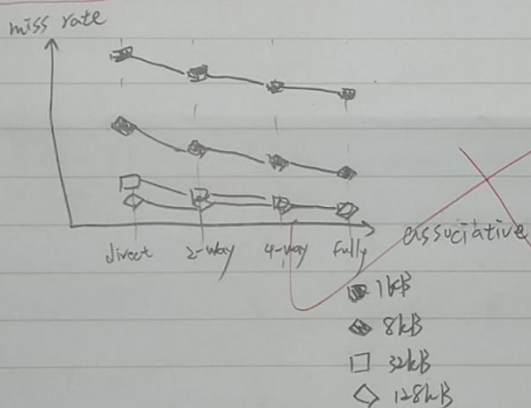 miss rate
direct 2-way 4-way fully
associative
1kB
8kB
32kB
128kB